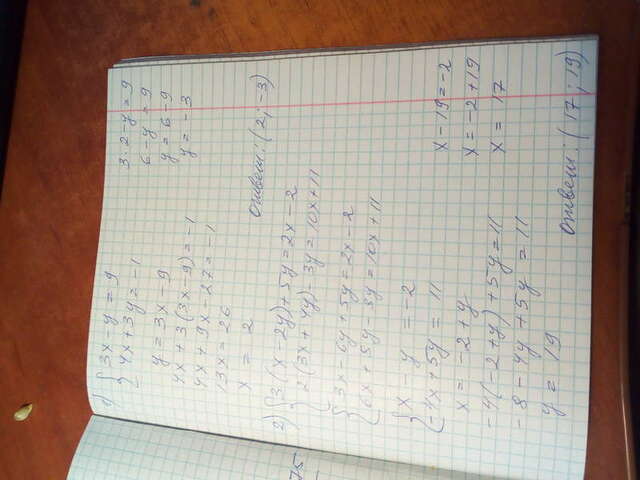 1) { 3x - y = 9
4x + 3y = -1
y = 3x - 9
4x + 3(3x - 9) = -1
4x + 9x - 27 = -1
13x = 26
x = 2
3·2 - y = 9
6 - y = 9
y = 6 - 9
y = -3
Ответ: (2; -3)
2) { 3(x - 2y) + 5y = 2x - 2
2(3x + 4y) - 3y = 10x + 11
{ 3x - 6y + 5y = 2x - 2
3y = 10x + 11
{ x - y = -2
-4x + 5y = 11
x = -2 + y
-4(-2 + y) + 5y = 11
-8 - 4y + 5y = 11
y = 19
x - 19 = -2
x = -2 + 19
x = 17
Ответ: (17; 19)
75